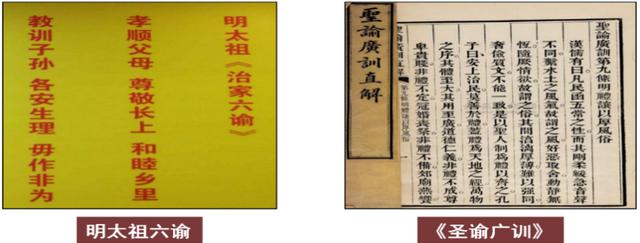 明太祖《治家六谕》
孝顺父母 尊敬长上 和睦乡里
教训子孙 各安生理 毋作非为
明太祖六谕
聖諭廣訓直解
聖諭廣訓第九條明禮讓以厚風俗
漢儒有曰凡民函五常之性而其剛柔緩急音聲
不同繫水土之風氣故謂之風好惡取舍動靜無
恆隨厥情欲故謂之俗其間淳漓厚薄難以强同
奢儉質文不能一致是以聖人制爲禮以齊之孔
子曰安上治民莫善於禮蓋禮爲天地之經萬物
之序其體至大其用至廣道德仁義非禮不成尊
卑貴賤非禮不定冠婚喪祭非禮不備郊廟燕饗
聖諭廣訓直解
《圣谕广训》